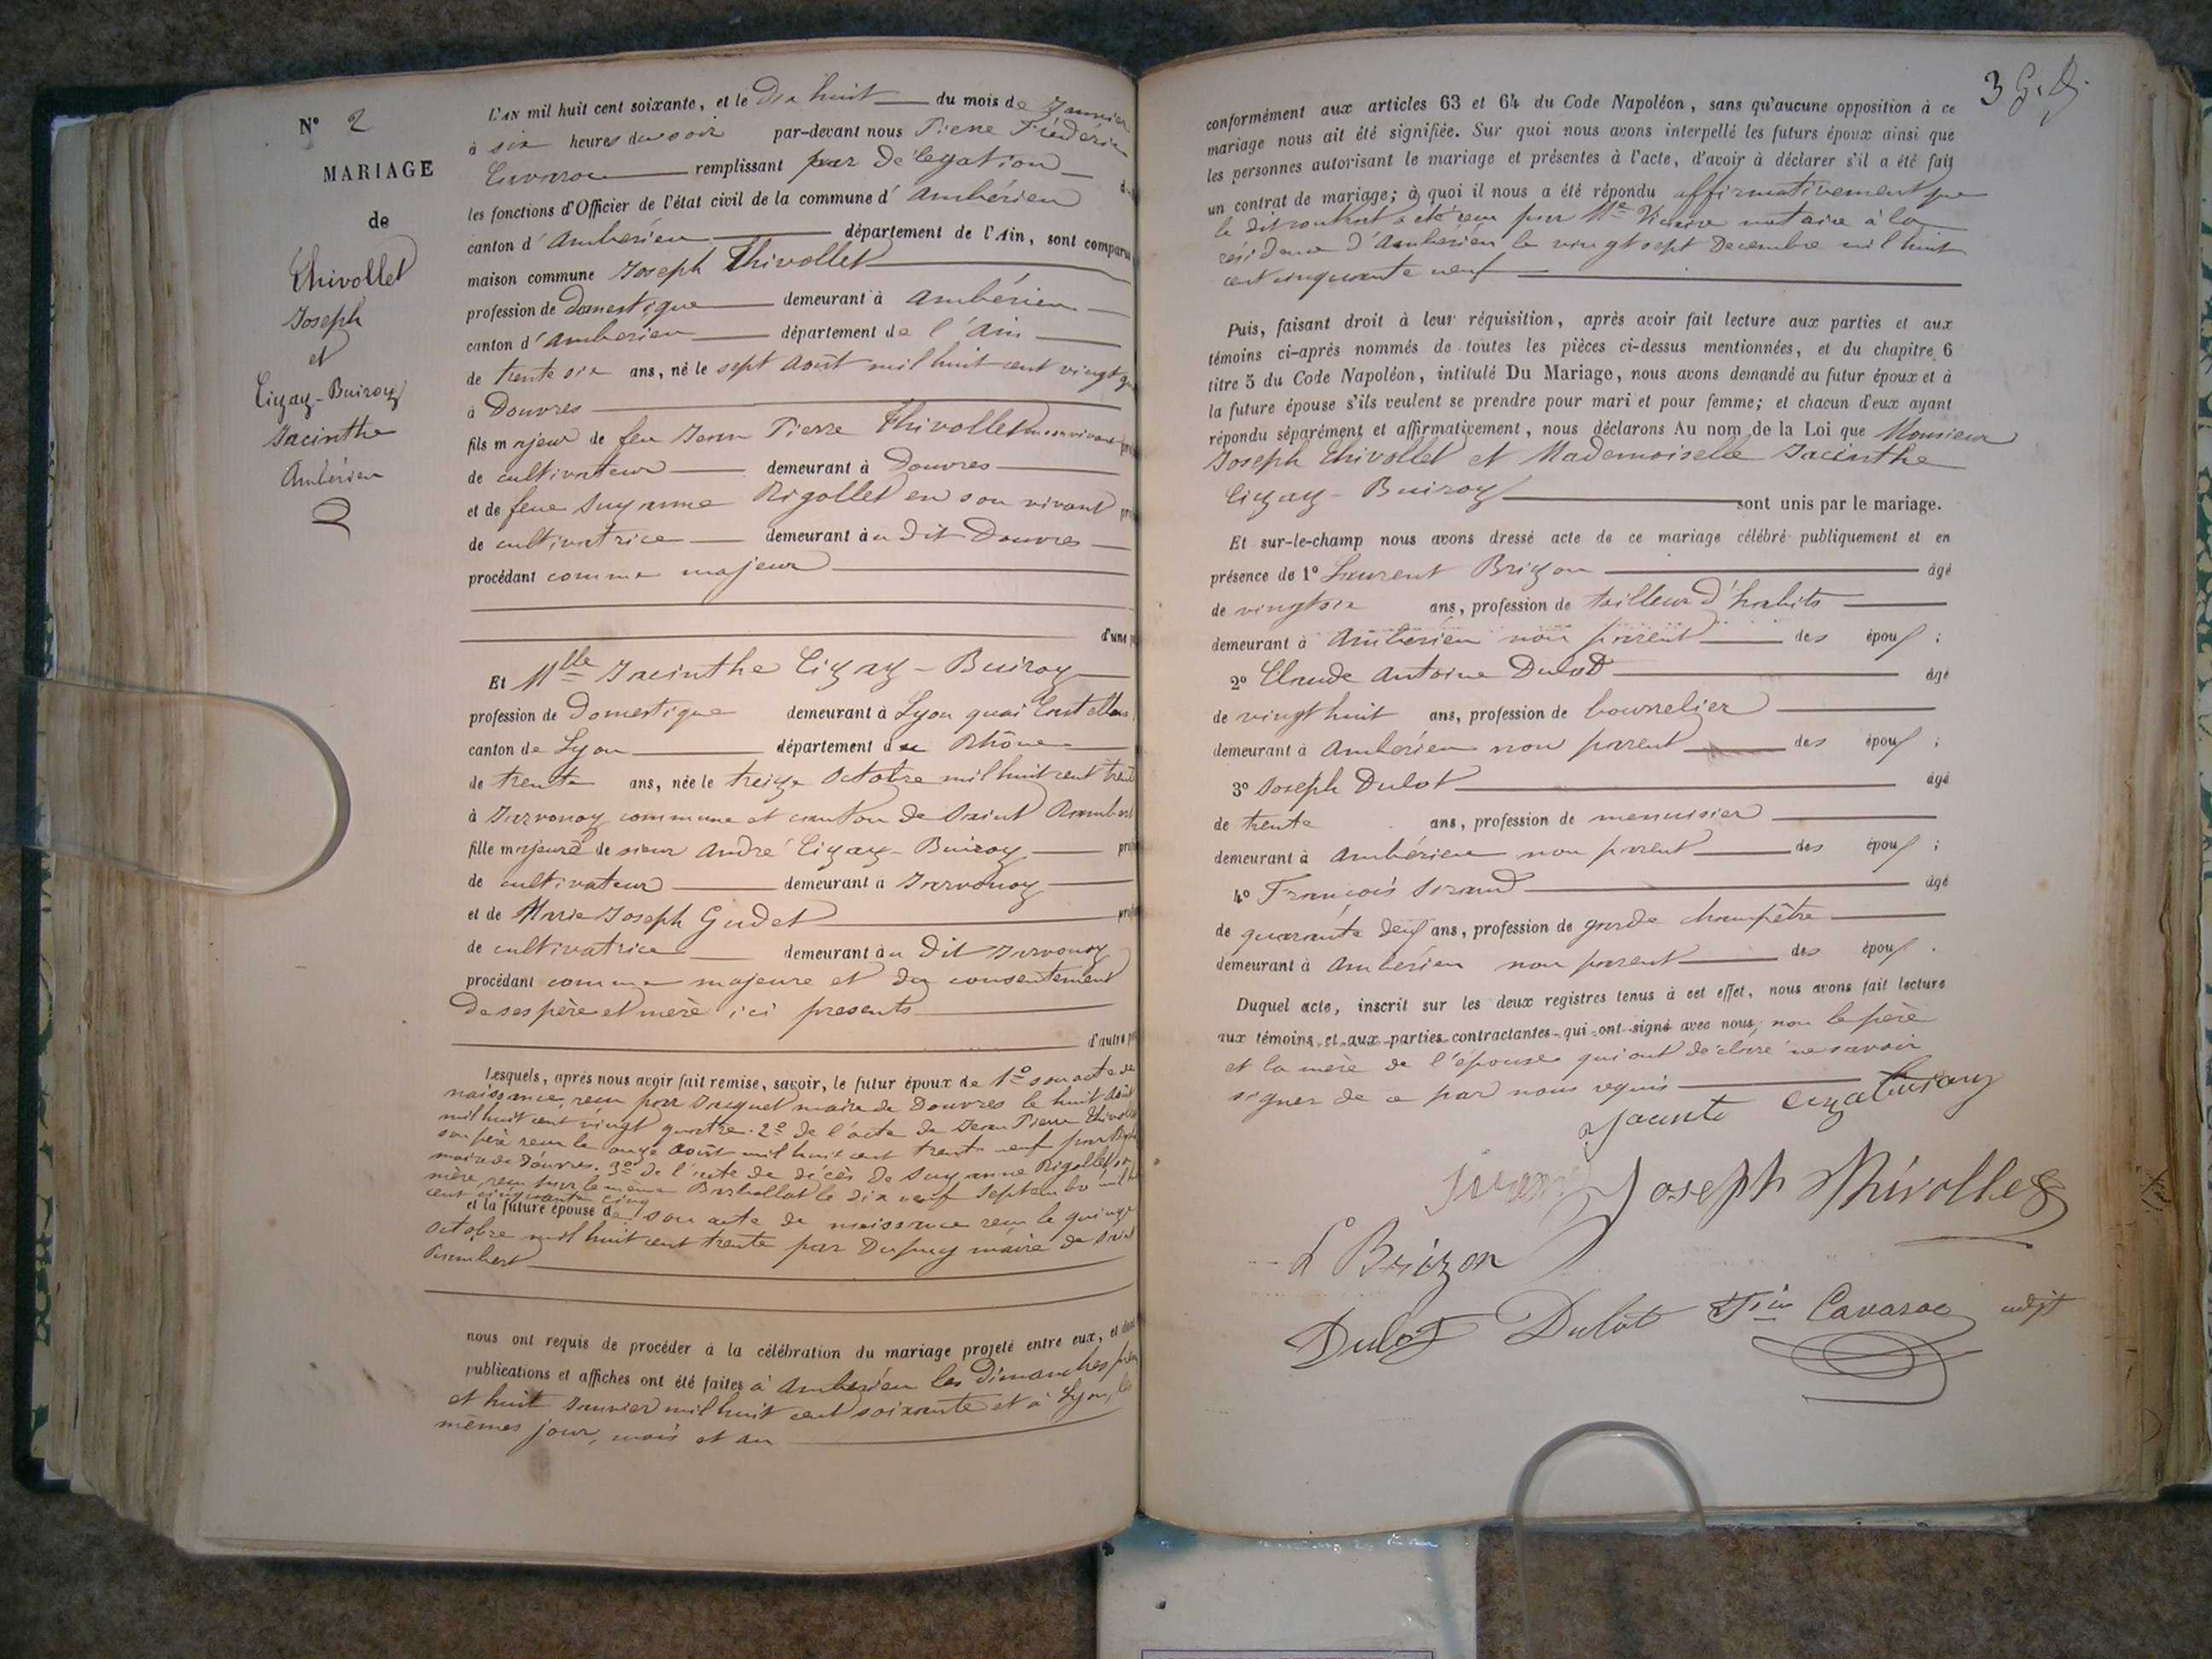 N° 2
MARIAGE
de
Thivollet
Joseph
et
Cizay-Buiroz
Jacinthe
Ambérieu
L'AN mil huit cent soixante, et le Dix huit du mois de Janvier
à six heures du soir par-devant nous Pierre Frédéric
Cavaroc remplissant par Délégation
les fonctions d'Officier de l'état civil de la commune d'Ambérieu
canton d'Ambérieu département de l'Ain, sont comparu
maison commune Joseph Thivollet
profession de Domestique demeurant à Ambérieu
canton d'Ambérieu département de l'Ain
de trente six ans, né le sept Août mil huit cent vingt
à Douvres
fils majeur de feu Jean Pierre Thivollet en son vivant
de cultivateur demeurant à Douvres
et de feue Suzanne Rigollet en son vivant
de cultivatrice demeurant au Dit Douvres
procédant comme majeur
d'une
Et Mlle Jacinthe Cizay-Buiroz
profession de Domestique demeurant à Lyon quai
canton de Lyon département du Rhône
de trente ans, née le treize Octobre mil huit cent
à Javornoz commune et canton de Saint Rambert
fille majeure de sieur André Cizay-Buiroz
de cultivateur demeurant à Javornoz
et de Marie Joseph Gudet
de cultivatrice demeurant au Dit Javornoz
procédant comme majeure et du consentement
De ses père et mère ici présents
d'autre
Lesquels, après nous avoir fait remise, savoir, le futur époux de 1° son acte de
naissance reçu par Juquet maire de Douvres le huit Août
mil huit cent vingt quatre. 2° de l'acte de Jean Pierre
son père reçu le onze Août mil huit cent trente neuf par
maire de Douvres. 3° de l'acte de décès de Suzanne Rigollet
mère, reçu par le même le dix neuf Septembre mil
cent cinquante cinq
et la future épouse de son acte de naissance reçu le quinze
Octobre mil huit cent trente par Dupuy maire de Saint
Rambert
nous ont requis de procéder à la célébration du mariage projeté entre eux, et dont
publications et affiches ont été faites à Ambérieu les Dimanches
et huit Janvier mil huit cent soixante et à Lyon, les
mêmes jour, mois et an
3
conformément aux articles 63 et 64 du Code Napoléon, sans qu'aucune opposition à ce
mariage nous ait été signifiée. Sur quoi nous avons interpellé les futurs époux ainsi que
les personnes autorisant le mariage et présentes à l'acte, d'avoir à déclarer s'il a été fait
un contrat de mariage; à quoi il nous a été répondu affirmativement que
le dit contrat a été reçu par Me notaire à la
résidence d'Ambérieu le vingt sept Décembre mil huit
cent cinquante neuf
Puis, faisant droit à leur réquisition, après avoir fait lecture aux parties et aux
témoins ci-après nommés de toutes les pièces ci-dessus mentionnées, et du chapitre 6
titre 5 du Code Napoléon, intitulé Du Mariage, nous avons demandé au futur époux et à
la future épouse s'ils veulent se prendre pour mari et pour femme; et chacun d'eux ayant
répondu séparément et affirmativement, nous déclarons Au nom de la Loi que Monsieur
Joseph Thivollet et Mademoiselle Jacinthe
Cizay-Buiroz sont unis par le mariage.
Et sur-le-champ nous avons dressé acte de ce mariage célébré publiquement et en
présence de 1° Laurent Brizon âgé
de vingt six ans, profession de tailleur d'habits
demeurant à Ambérieu non parent des époux ;
2° Claude Antoine Dulot âgé
de vingt huit ans, profession de bourrelier
demeurant à Ambérieu non parent des époux ;
3° Joseph Dulot âgé
de trente ans, profession de menuisier
demeurant à Ambérieu non parent des époux ;
4° François Sirand âgé
de quarante deux ans, profession de garde champêtre
demeurant à Ambérieu non parent des époux .
Duquel acte, inscrit sur les deux registres tenus à cet effet, nous avons fait lecture
aux témoins et aux parties contractantes qui ont signé avec nous, non le père
et la mère de l'épouse qui ont déclaré ne savoir
signer de ce par nous requis
Jacinte
Joseph Thivollet
L Brizon
Dulot Dulot Cavaroc adjt